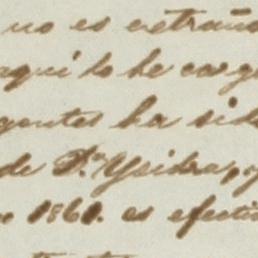 no es estraño
aqui lo he carg
gentes ha sid
de Sn. Ysidra, y
1861. es efecti